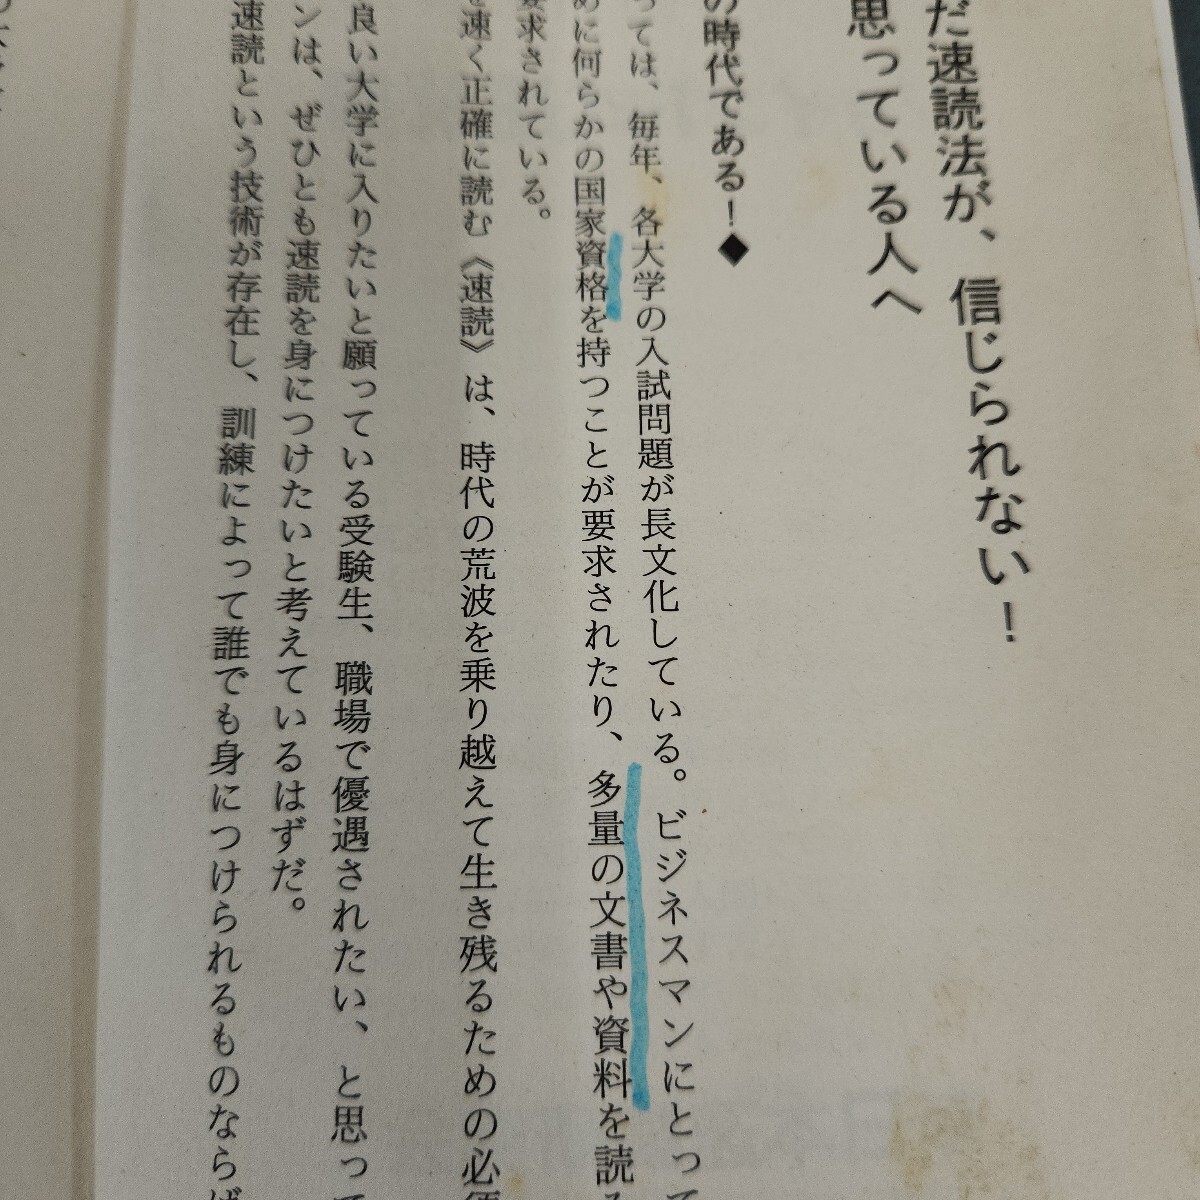 だ速読法が、信じられない！
思っている人へ
の時代である！◆
っては、毎年、各大学の入試問題が長文化している。ビジネスマンにとって
めに何らかの国家資格を持つことが要求されたり、多量の文書や資料を読
要求されている。
速く正確に読む《速読》は、時代の荒波を乗り越えて生き残るための必
良い大学に入りたいと願っている受験生、職場で優遇されたい、と思って
ンは、ぜひとも速読を身につけたいと考えているはずだ。
速読という技術が存在し、訓練によって誰でも身につけられるものならば